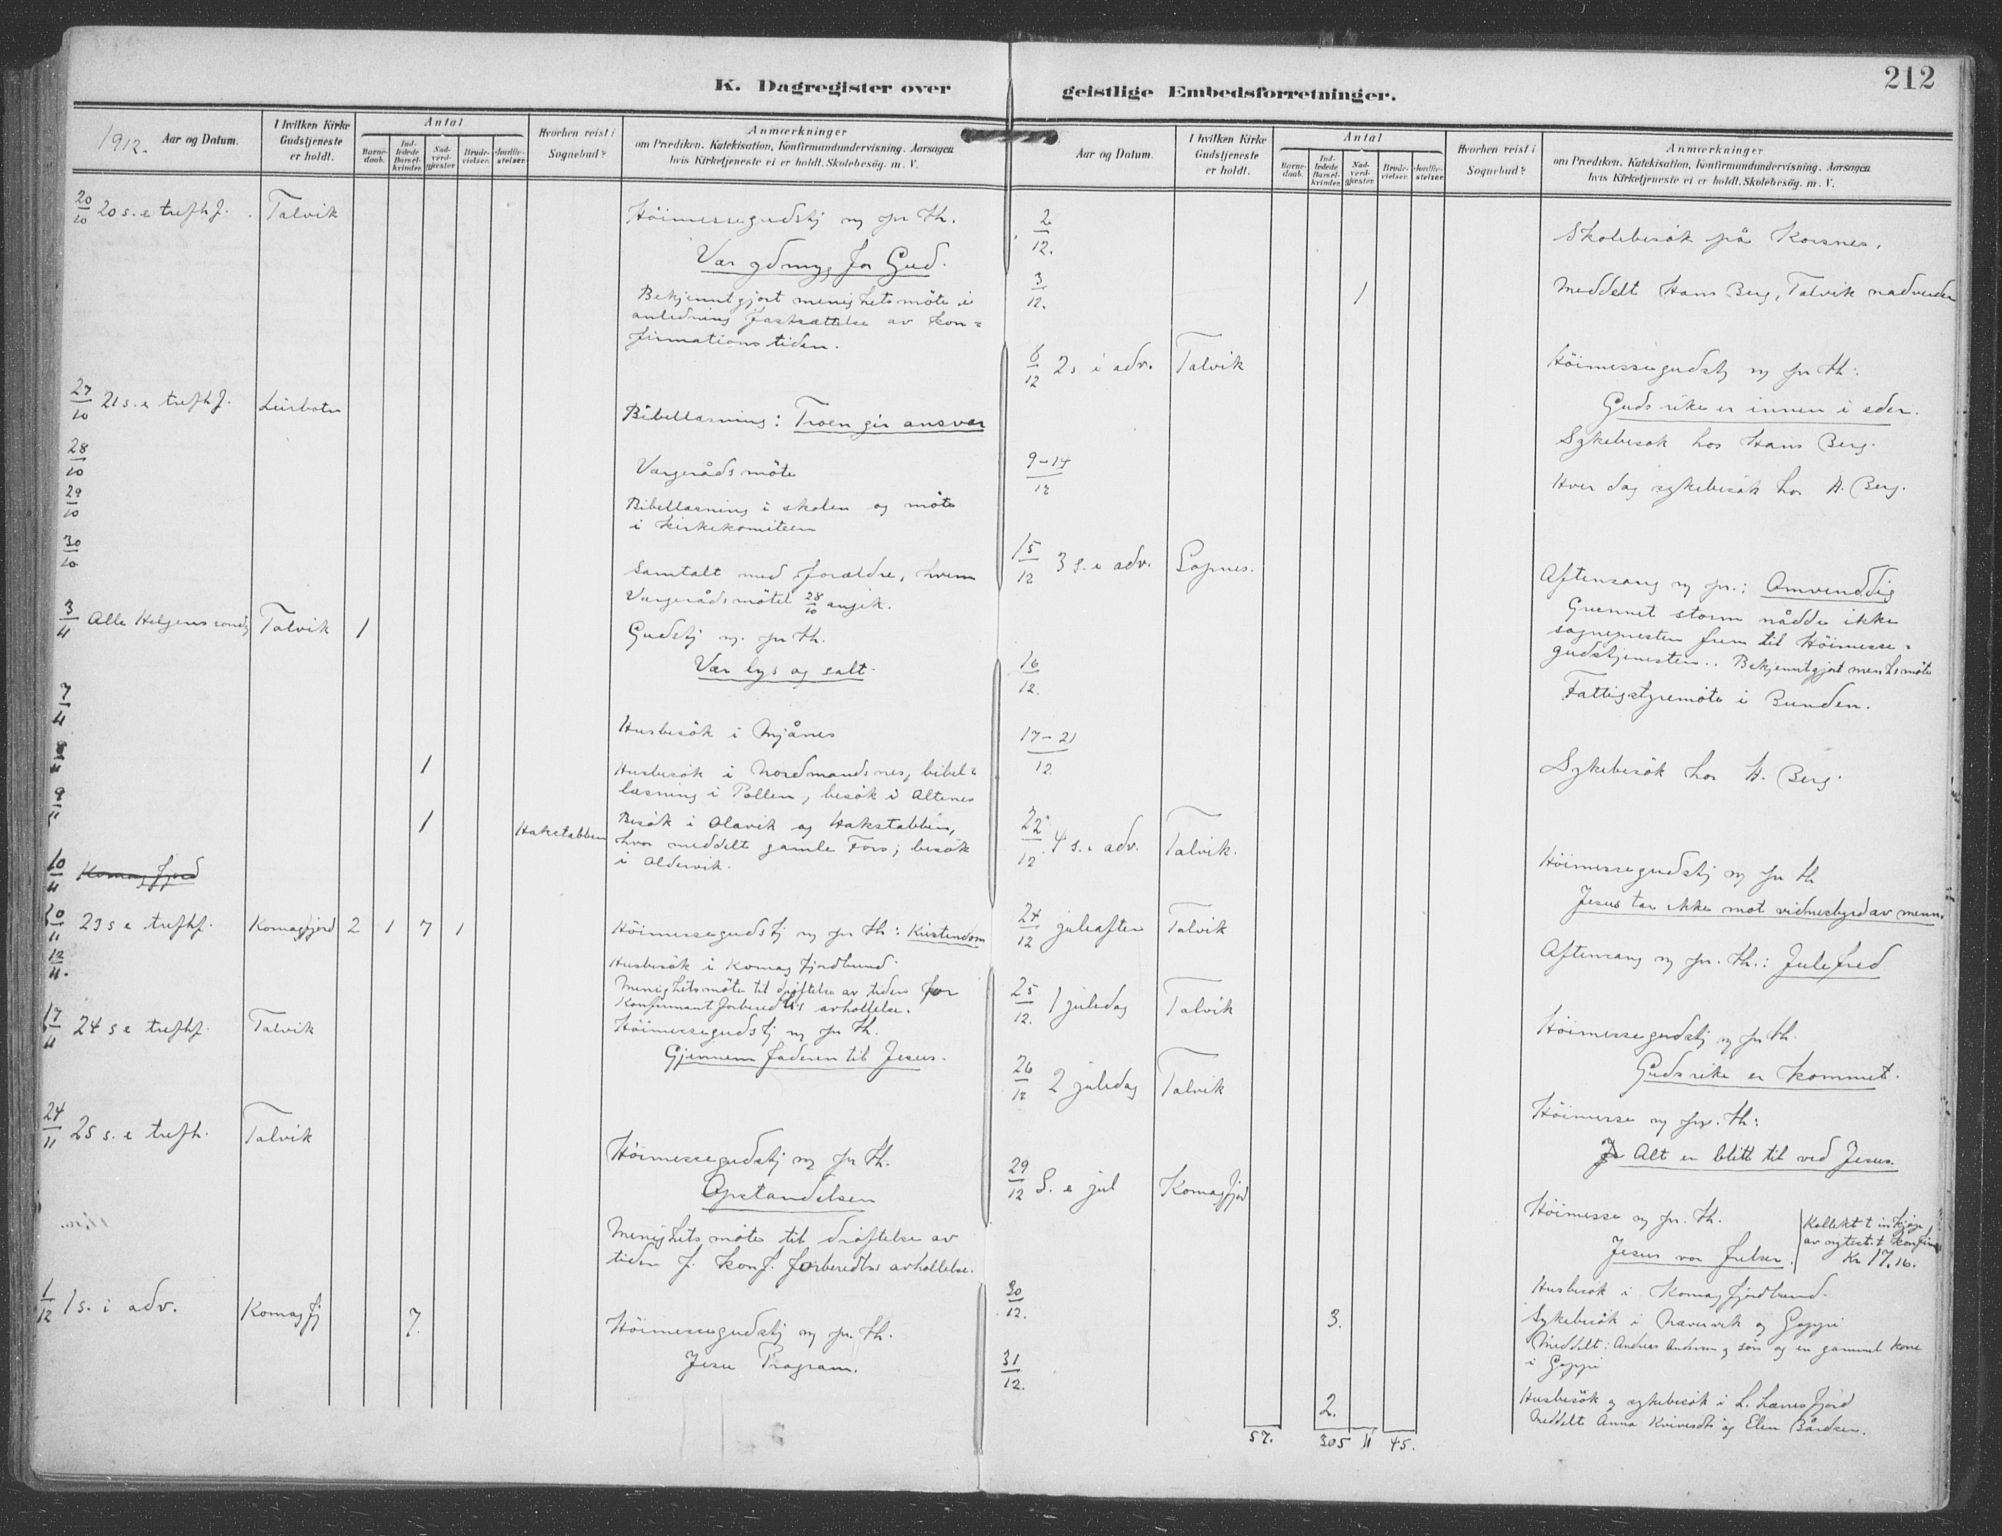 K. Dagregister over
1912. Aar og Datum.
I hvilken Kirke Gudstjeneste er holdt.
Antal
Barnedaab.
Indledede Barselkvinder.
Nadverdgjester
Brudevielser.
Jordfæstelser.
Hvorhen reist i Sognebud?
Anmærkninger
om Prædiken, Katekisation, Konfirmandundervisning. Aarsagen
hvis Kirketjeneste ei er holdt. Skolebesög. m. V.
20/10 20 s. e trefh f. Talvik Höimessegudstj og pr th.
Vær ydmyg for Gud.
Bekjenntgjort menighetsmöte i
anledning fastsættelse av kon=
firmationstiden.
27/10 21 s. e trefh f. Leirbotn Bibellæsning: Troen gir ansvar
28/10 Værgerådsmöte
29/10 Bibellæsning i skolen og möte
i kirkekomiteen
30/10 Samtalt med forældre, hvem
Værgerådsmötet 28/10 angik.
3/4 Alle Helgens sondg Talvik 1 Gudstj og pr th.
Vær lys og salt.
7/4 Husbesök i Mjånes
8/11 1 Husbesök i Nordmandsnes, bibel=
læsning i Pollen, besök i Altenes
9/11 1 Hakstabben Besök i Olavik og Hakstabben,
hvor meddelt gamle Fors; besök
i Oldervik.
10/11 Komagfjord
10/11 23 s e trefhf. Komagfjord 2 1 7 1 Höimessegudstj og pr th: Kristendom
12/11. Husbesök i Komagfjordbund.
Menighetsmöte til dröftelse av tiden for
Konfirmantforbered tls avhollelse.
17/11 24 s e trefhf. Talvik Höimessegudstj og pr th.
Gjennem faderen til Jesus.
24/11 25 s. e trefh. Talvik Höimessegudstj og pr th.
Opstandelsen
Menighetsmöte til dröftelse av
tiden f. konf. forberedtls avhollelse.
1/12 1 s. i adv. Komagfj 7. Höimessegudstj og pr. th.
Jesu Program.
geistlige Embedsforretninger.
212
Aar og Datum.
I hvilken Kirke Gudstjeneste er holdt.
Antal
Barnedaab.
Indledede Barselkvinder.
Nadverdgjester
Brudevielser.
Jordfæstelser
Hvorhen reist i Sognebud?
Anmærkninger
om Prædiken, Katekisation, Konfirmandundervisning. Aarsagen
hvis Kirketjeneste ei er holdt. Skolebesög. m. V.
2/12. Skolebesök på Korsnes.
3/12. 1 Meddelt Hans Berg, Talvik nadverden
8/12 2 s i adv. Talvik Höimessegudstj og pr th:
Guds rike er innen i eder.
Sykebesök hos Hans Berg.
9-14/12 Hver dag sykebesök hos H. Berg.
15/12 3 s. i adv. Lopnes. Aftensang og pr.: Omvenddig
Grunnet storm nådde ikke
sognepresten frem til Höimesse=
gudstjenesten.. Bekjenntgjort men hs möte
16/12. Fattigstyremöte i Bunden.
17-21/12. Sykebesök hos H. Berg.
22/12. 4 s. i adv. Talvik. Höimessegudstj og pr th
Jesus tar ikke mot vidnesbyrd av menn.
24/12 juleaften Talvik Aftensang og pr. th.: Julefred
25/12. 1 juledag Talvik Höimessegudstj og pr th.
Guds rike er kommet.
26/12 2 juledag Talvik Höimesse og pr. th:
Alt er blitt til ved Jesus.
29/12 S. e jul Komagfjord Höimesse og pr. th.
Jesus vor frelser.
Kollekt t innkjöp
av nytest. t konfirm
Kr 17.16.
30/12. Husbesök i Komagfjordbund.
3. Sykebesök i Nævervik og Goppi
Meddelt: Andreas Andersen og sön og en gammel kone
i Goppi
31/12. Husbesök og sykebesök i L. Lærresfjord
2. Meddelt Anna Kvivesdt og Elen Bårdsen.
57. 305 11 45.